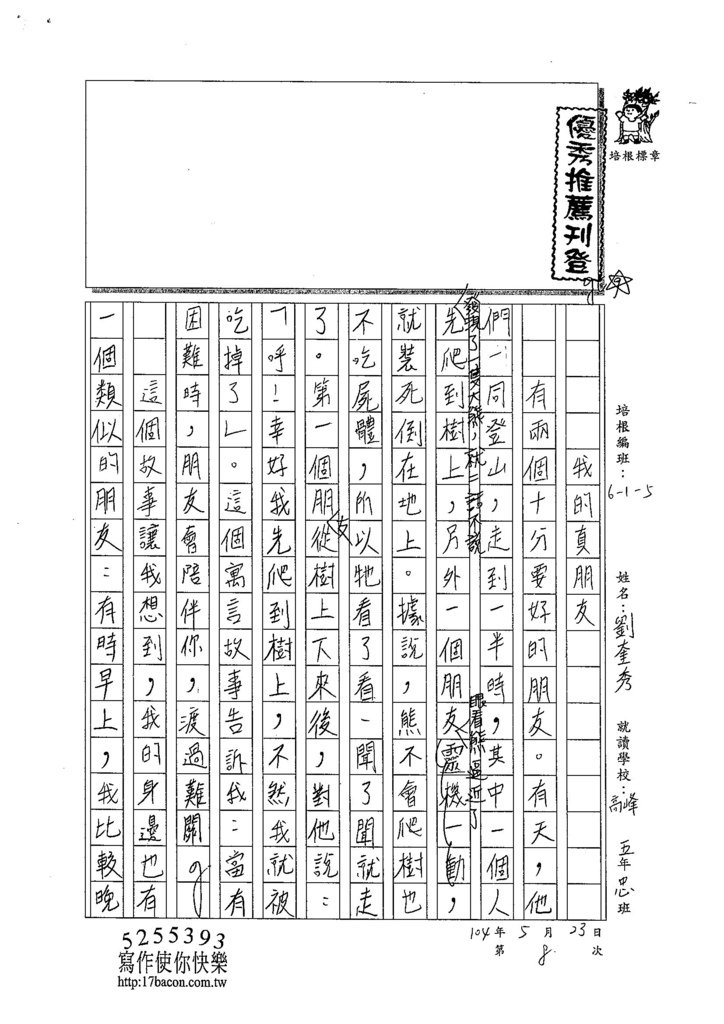 培根標章
優秀推薦刊登
培根編班：6-1-5
姓名：劉奎秀
就讀學校：高峰 五年忠班
104年5月23日
第8次
我的真朋友
有兩個十分要好的朋友。有天，他
們一同登山，走到一半時，其中一個人
發現了一隻大熊，就二話不說
先爬到樹上，另外一個朋友靈機一動，
眼看熊逼近了
就裝死倒在地上。據說，熊不會爬樹也
不吃屍體，所以牠看了看、聞了聞就走
了。第一個朋友從樹上下來後，對他說：
「呼！幸好我先爬到樹上，不然我就被
吃掉了」。這個寓言故事告訴我：當有
困難時，朋友會陪伴你，渡過難關。
這個故事讓我想到，我的身邊也有
一個類似的朋友：有時早上，我比較晚
5255393
寫作使你快樂
http:17bacon.com.tw